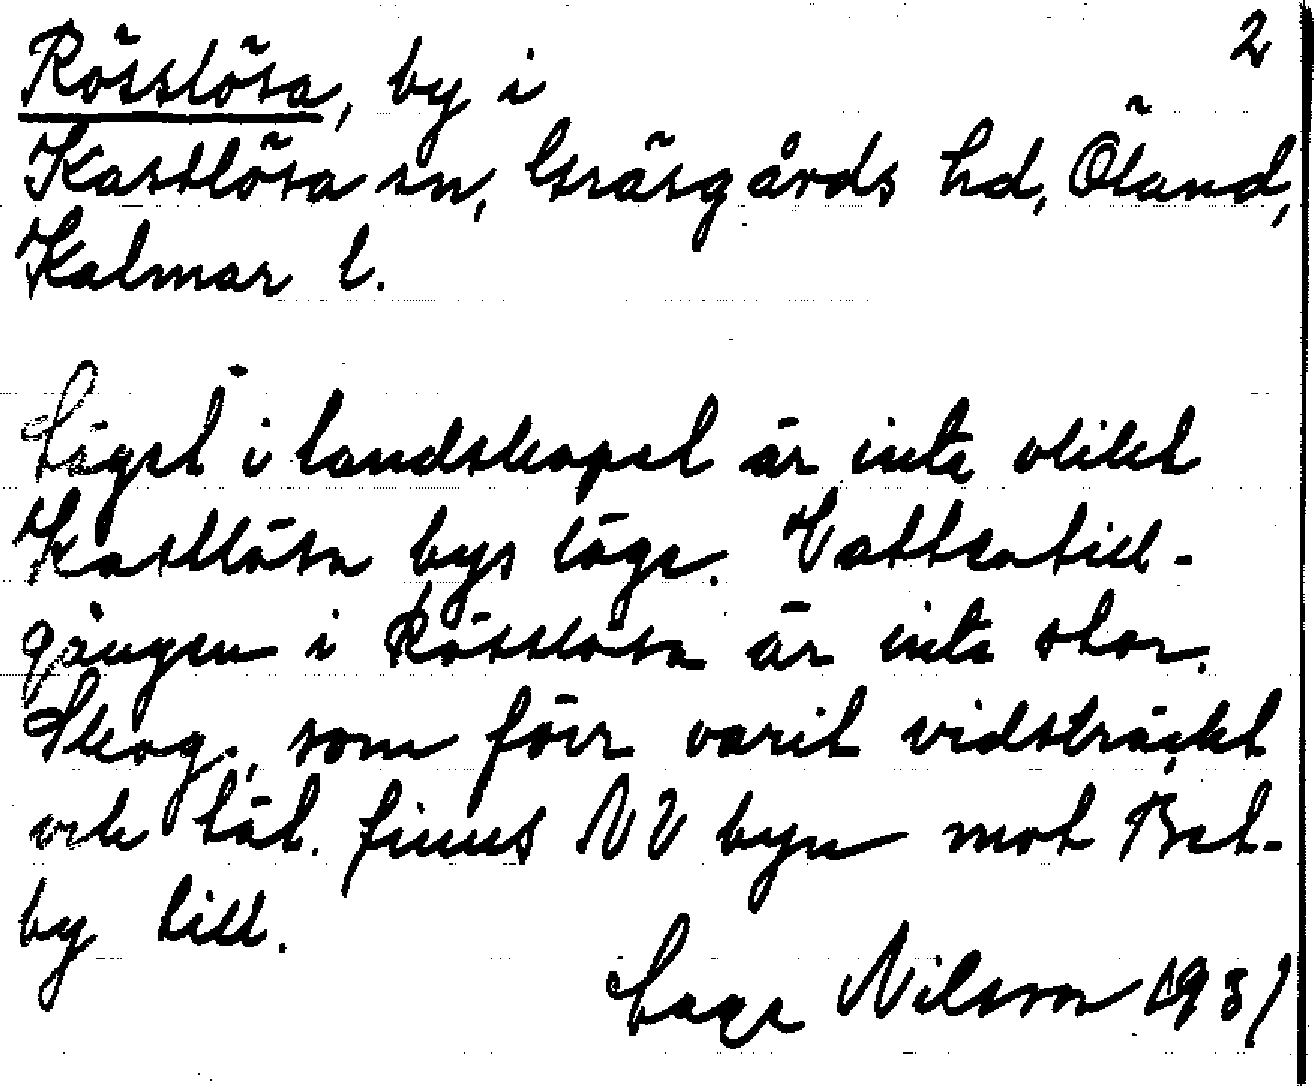 2
Rösslösa, by i
Kastlösa sn, Gräsgårds hd, Öland,
Kalmar l.
Läget i landskapet är inte olikt
Kastlösa bys läge. Vattentill-
gången i Rösslösa är inte stor.
Skog, som förr varit vidsträckt
och tät. finns NV byn mot Bet-
by till.
Lage Nilsson 1931